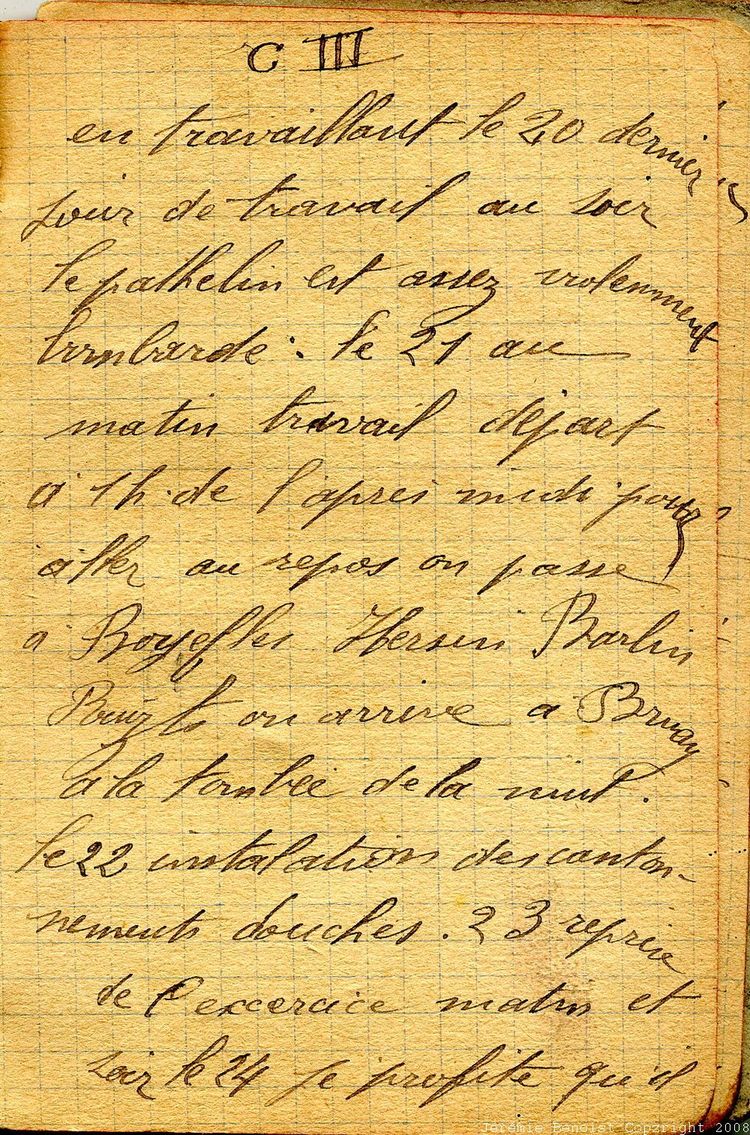 C III
en travaillant le 20 dernier
jour de travail au soir
le pathelin est assez violemment
bombardé. le 21 au
matin travail départ
à 1h. de l'après midi pour
aller au repos on passe
à Boyeffles Hersin Barlin
on arrive a Bruay
a la tombée de la nuit.
le 22 instalations des canton-
nements douches. 23 reprise
de l'excercice matin et
soir le 24 je profite qu'il
Jérémie Benoist Copyright 2008